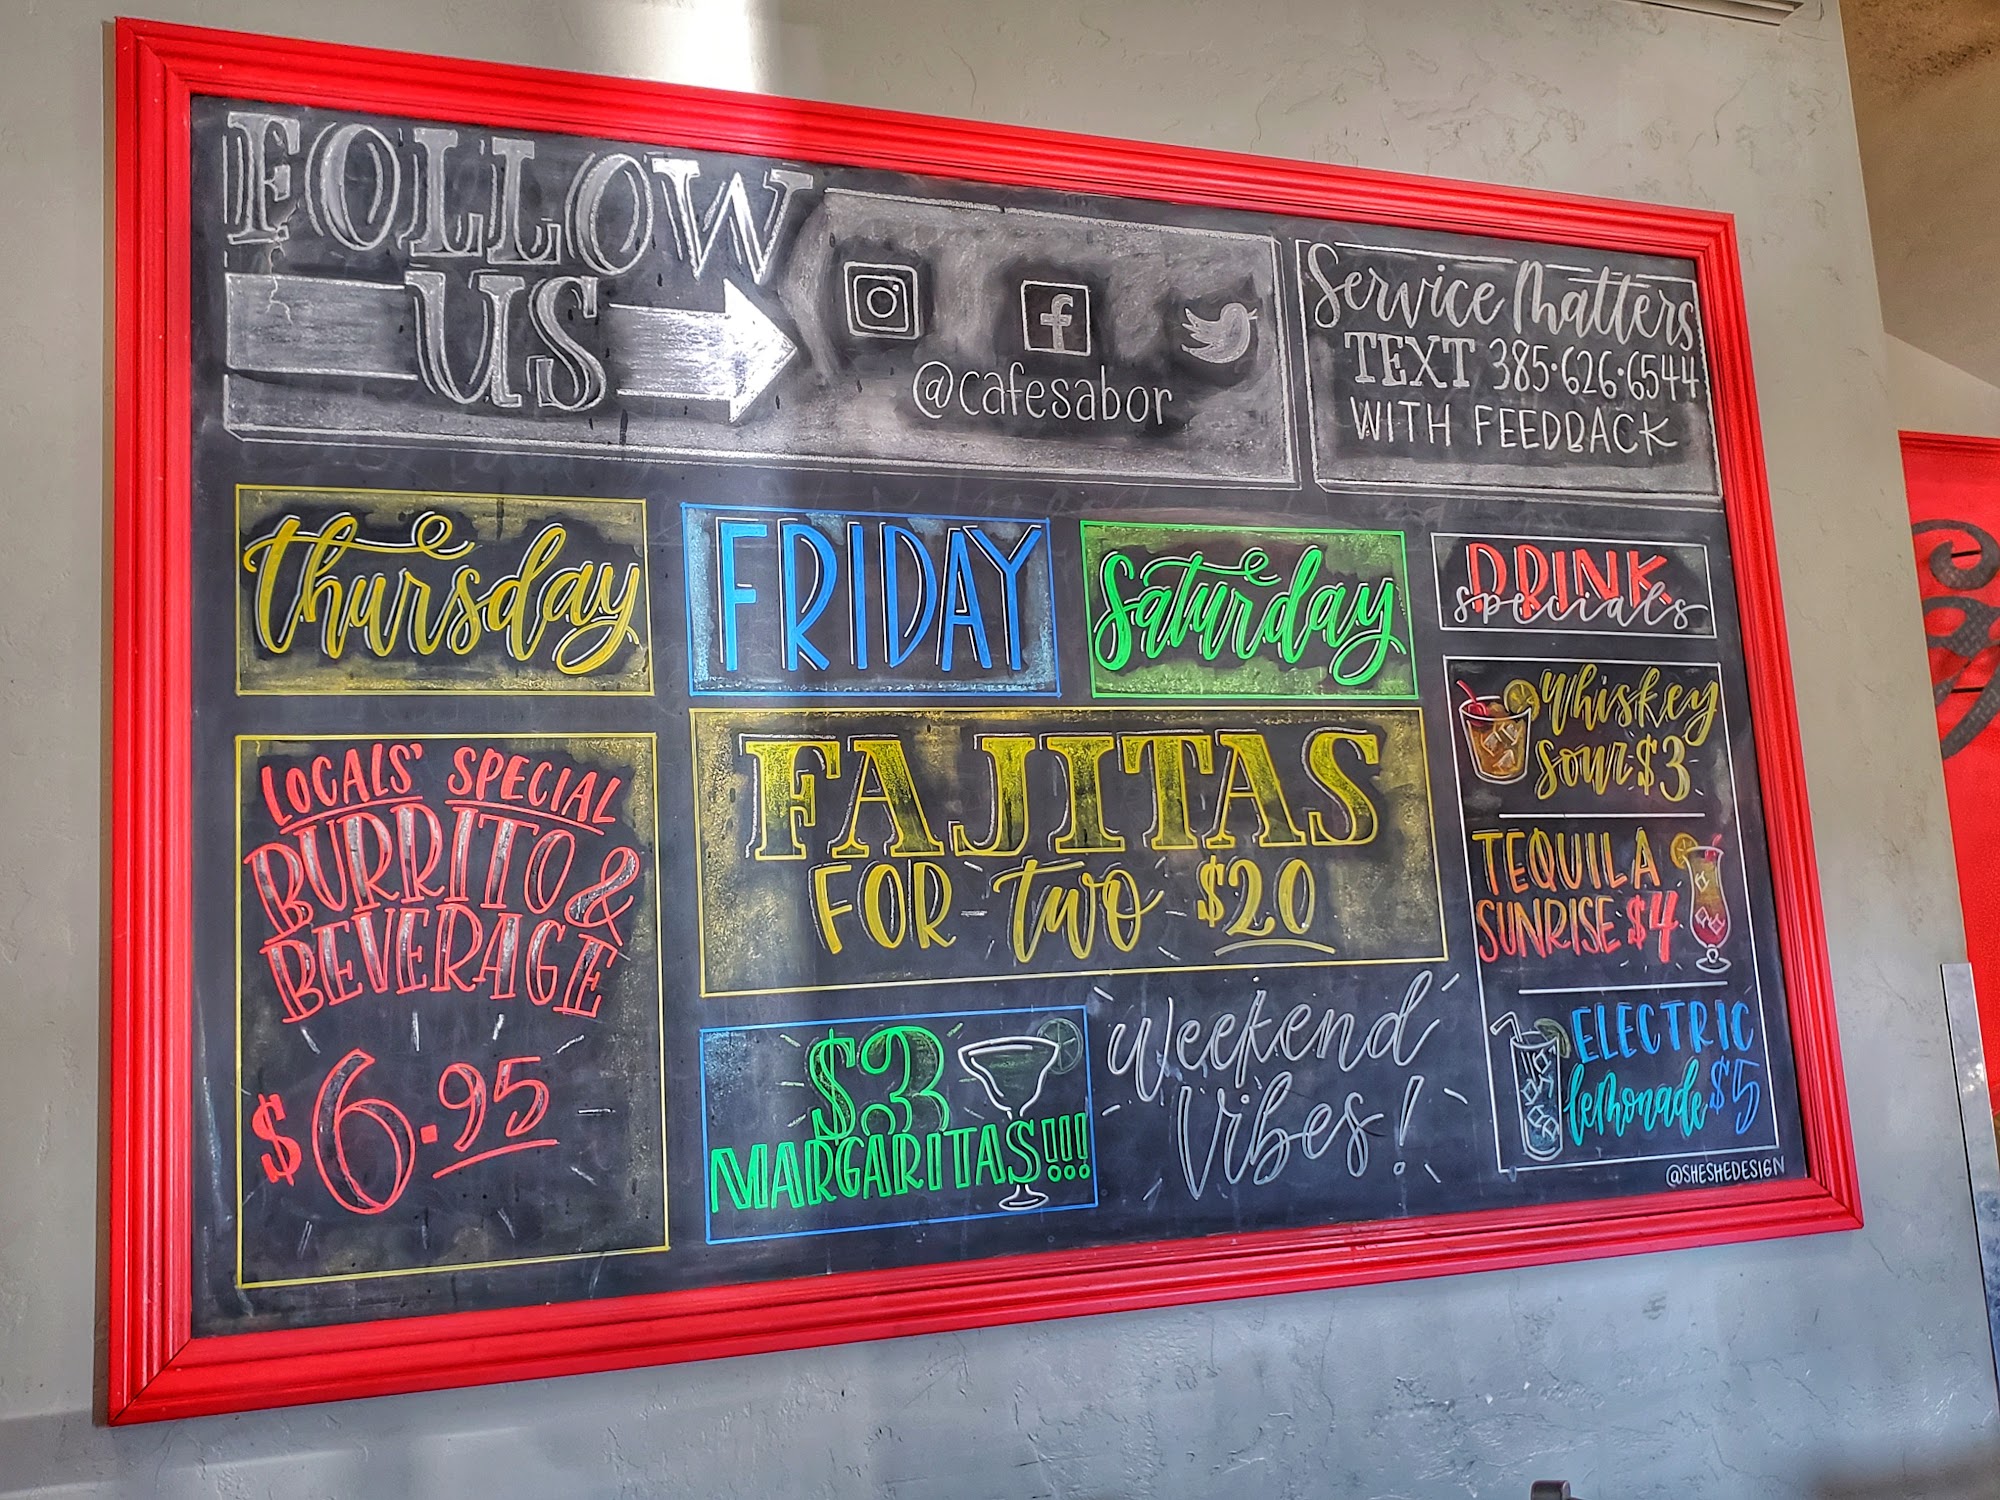 FOLLOW
US
@cafesabor
Service Matters
TEXT 385·626·6544
WITH FEEDBACK
Thursday
FRIDAY
Saturday
DRINK
specials
LOCALS' SPECIAL
BURRITO &
BEVERAGE
$6.95
FAJITAS
FOR two $20
$3
MARGARITAS!!!
Weekend
Vibes!
Whiskey
sour $3
TEQUILA
SUNRISE $4
ELECTRIC
lemonade $5
@SHESHEDESIGN